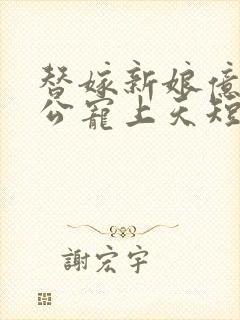 替嫁新娘億
公寵上天短
謝宏宇